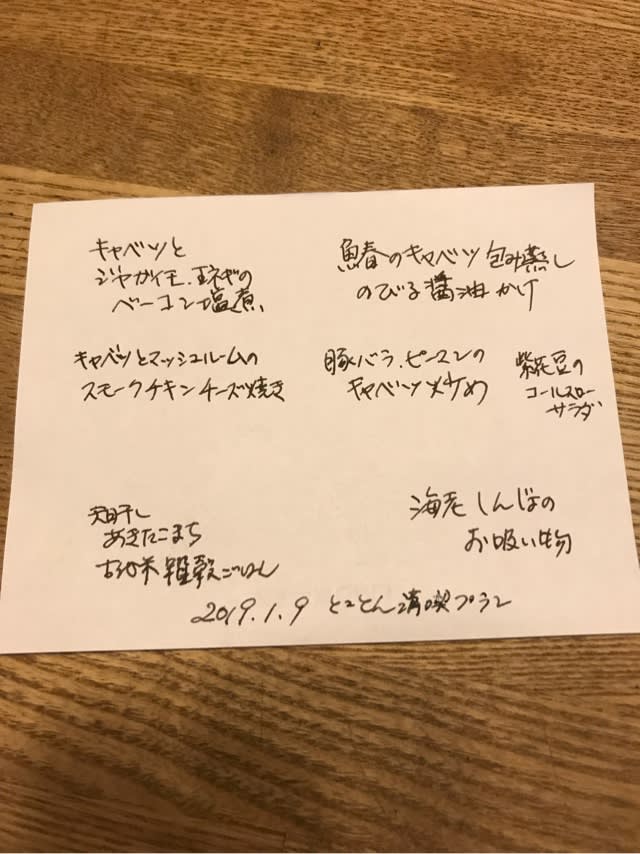 キャベツと
ジャガイモ、玉ネギの
ベーコン塩煮
鰆のキャベツ包み蒸し
のびる醤油かけ
キャベツとマッシュルームの
スモークチキンチーズ焼き
豚バラ、ピーマンの
キャベツ炒め
紫花豆の
コールスロー
サラダ
天日干し
あきたこまち
古代米雑穀ごはん
海老しんじょの
お吸い物
2019.1.9 とことん満喫プラン